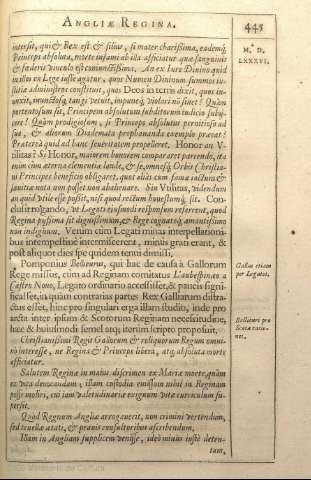 ANGLIÆ REGINA.
445
M. D.
LXXXVI.
intersit, qui & Rex est & filius, si mater charissima, eademq́;
Princeps absoluta, morte infami ab illa afficiatur quæ sanguinis
& fœderis vinculo est coniunctissima. An ex Iure Diuino quid
in illos ex Lege iusse agatur, quos Numen Diuinum summos iu-
stitiæ administros constituit, quos Deos in terris dixit, quos in-
unxit, inunctosq́; tangi vetuit, impunéq́; violari nō sinet? Quàm
portentosum sit, Principem absolutum subditorum iudicio subij-
cere? Quàm prodigiosum, si Princeps absolutus
& aliorum Diademata prophananda exemplo præeat?
Præterea quid ad hanc seueritatem propelleret. Honor an V-
tilitas? Si Honor, maiorem honorem compararet parcendo, ita
enim cum æterna clementiæ laude, & se, omnesq́; Orbis Christia-
ni Principes beneficio obligaret, quos alias cum famæ iactura &
sæuitiæ nota non posset non abalienare. Sin Vtilitas, videndum
an quid vtile esse possit, nisi quod rectum honestumq́; sit. Con-
clusit rogando, vt Legati eiusmodi responsum referrent, quod
Regina piissima sit dignissimum, & Rege cognatoq́; amantissimo
non indignum. Verùm cùm Legati minus interpellationi-
bus intempestiue intermiscerent, minùs grati erant, &
post aliquot dies spe quidem tenui dimissi.
Pomponius Belleurus, qui hac de causa à Gallorum
Rege missus, cùm ad Reginam comitatus L'aubespinæo à
Castro Nouo, Legato ordinario accessisset, & paucis signi-
ficasset, in quàm contrarias partes Rex Galliarum distra-
ctus esset, hinc pro singulari erga illam studio, inde pro
arcta inter ipsum & Scotorum Reginam necessitudine,
hæc & huiusmodi semel atq; iterùm scripto proposuit.
Gallus etiam
per Legatos.
Bellieuri pro
Scota ratio-
nes.
Christianissimi Regis Gallorum & reliquorum Regum omni-
nò interesse, ne Regina & Princeps libera, atq́; absoluta morte
afficiatur.
Salutem Reginæ in maius discrimen ex Mariæ morte, quàm
ex vita deuocandum; illam custodia emissam nihil in Reginam
posse moliri, cui iam valetudinaria exiguum vitæ curriculum su-
persit.
Quòd Regnum Angliæ arrogauerit, non crimini vertendum,
sed tenellæ ætati, & prauis consultoribus ascribendum.
Illam in Angliam supplicem venisse, ideò minùs iustè deten-
tam,